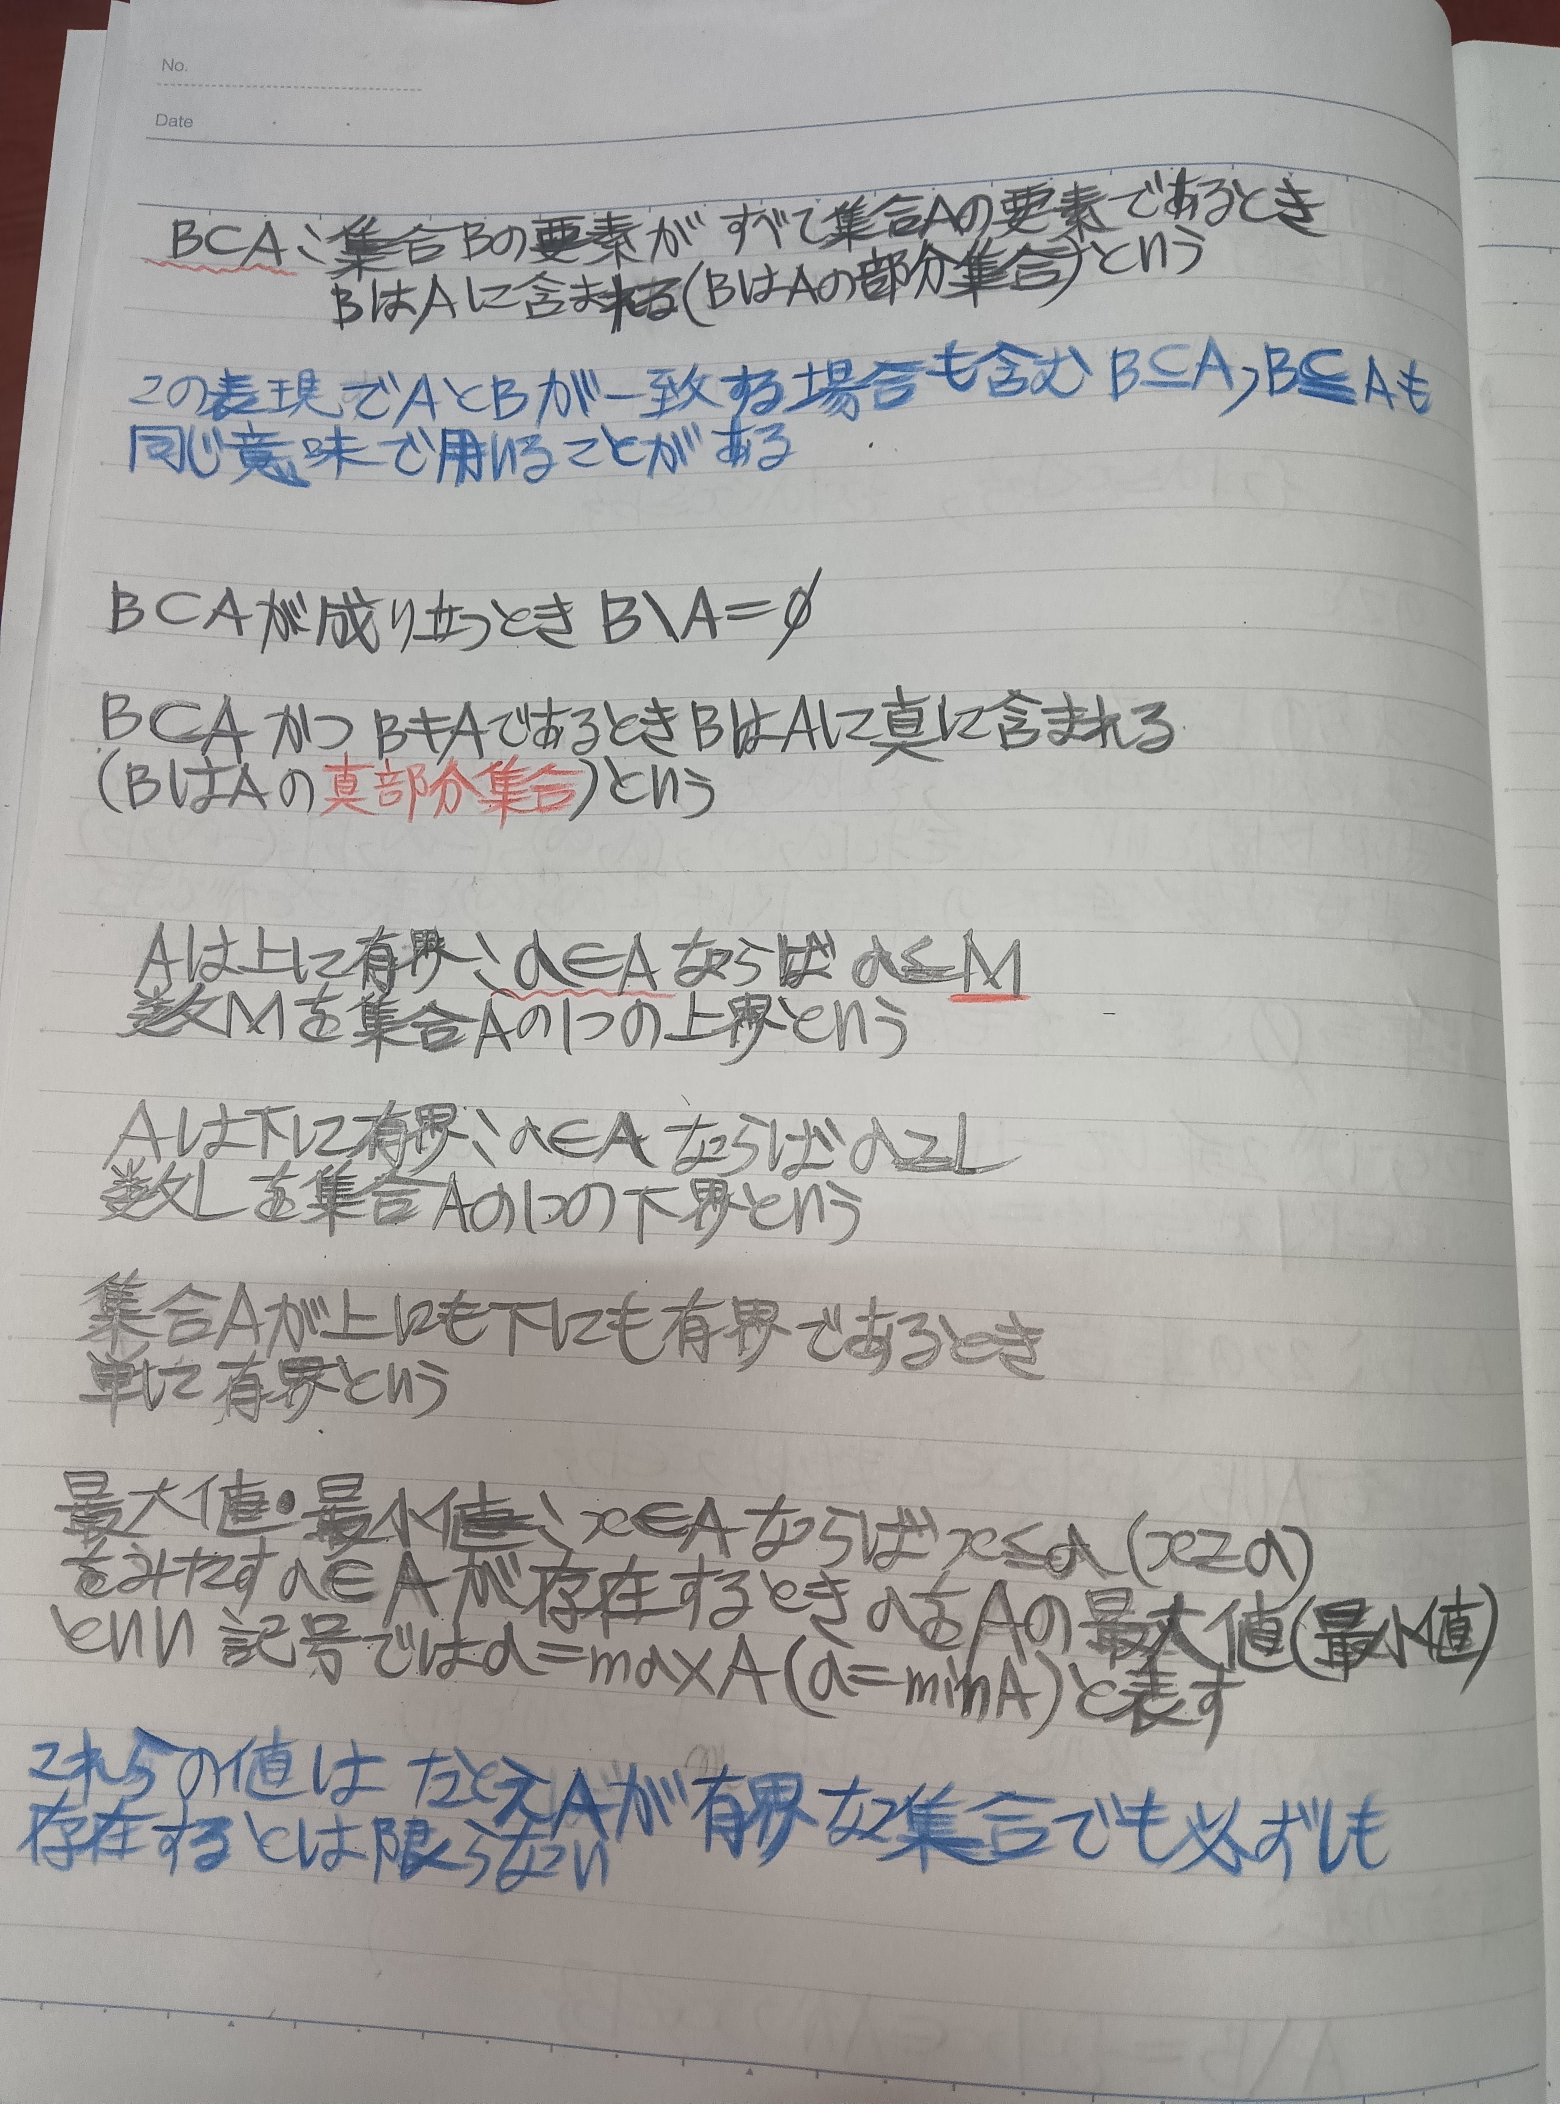 No.
Date
B⊂A: 集合Bの要素がすべて集合Aの要素であるとき
BはAに含まれる(BはAの部分集合)という
この表現でAとBが一致する場合も含む B⊆A, B≦Aも
同じ意味で用いることがある
B⊂Aが成り立つとき B\A=∅
B⊂A かつ B≠AであるときBはAに真に含まれる
(BはAの真部分集合)という
Aは上に有界: a∈A ならば a≦M
数Mを集合Aの1つの上界という
Aは下に有界: a∈A ならば a≧L
数Lを集合Aの1つの下界という
集合Aが上にも下にも有界であるとき
単に有界という
最大値・最小値: x∈Aならば x≦a (x≧a)
をみたすa∈Aが存在するときaをAの最大値(最小値)
といい 記号ではa=maxA(a=minA)と表す
これらの値は たとえAが有界な集合でも必ずしも
存在するとは限らない